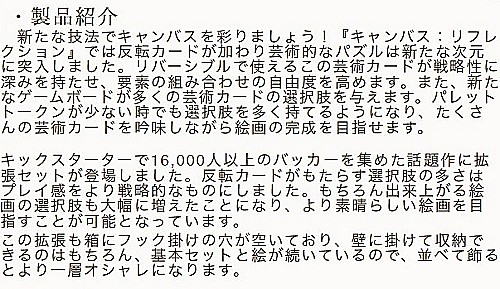 ・製品紹介
新たな技法でキャンバスを彩りましょう！『キャンバス：リフレ
クション』では反転カードが加わり芸術的なパズルは新たな次元
に突入しました。リバーシブルで使えるこの芸術カードが戦略性に
深みを持たせ、要素の組み合わせの自由度を高めます。また、新た
なゲームボードが多くの芸術カードの選択肢を与えます。パレット
トークンが少ない時でも選択肢を多く持てるようになり、たくさ
んの芸術カードを吟味しながら絵画の完成を目指せます。
キックスターターで16,000人以上のバッカーを集めた話題作に拡
張セットが登場しました。反転カードがもたらす選択肢の多さは
プレイ感をより戦略的なものにしました。もちろん出来上がる絵
画の選択肢も大幅に増えたことになり、より素晴らしい絵画を目
指すことが可能となっています。
この拡張も箱にフック掛けの穴が空いており、壁に掛けて収納で
きるのはもちろん、基本セットと絵が続いているので、並べて飾る
とより一層オシャレになります。